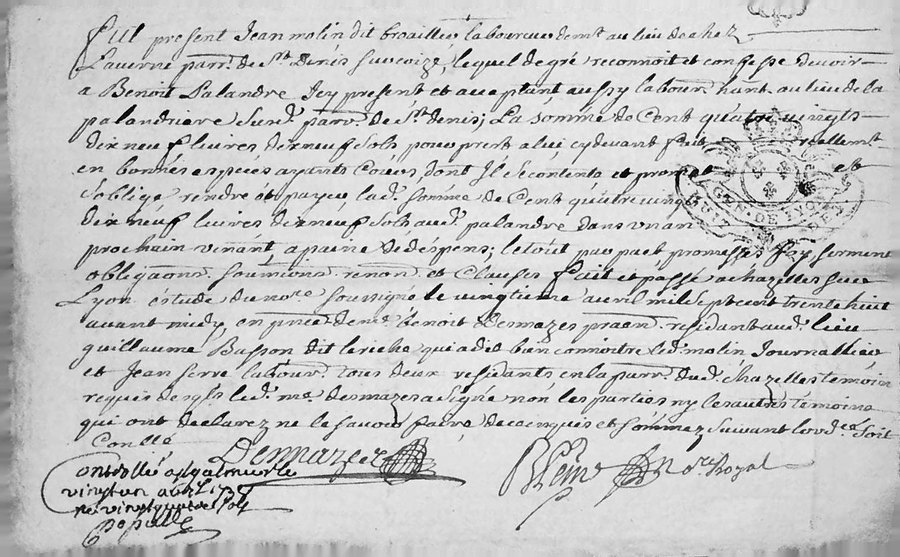 fut present Jean molin dit broailler laboureur demt. au lieu de chez
Laverne parr. de St. Denis sur coize, lequel de gré reconnoit et confesse devoir
a Benoit Palandre Icy present et acceptant aussy labour. hant. au lieu de la
palandriere susd. parr. de St. denis; La somme de Cent quatre vingts
dix neuf livres dix neuf sols pour prest a luy cy devant fait reellemt.
en bonnes espèces ayants Cours dont Il se contente et promet et
s'oblige rendre et payer lad. somme de Cent quatre vingt
dix neuf livres dix neuf sols aud. palandre dans un an
prochain venant a paine de despens; le tout par pact promesses foy serment
obligaons. soumions renon. et Clauses fait et passé a chazelles sur
Lyon estude du nore. soussigné le vingtieme avril mil sept cent trente huit
avant midy, en pnce de me. benoit Desmazes praen. residant aud. lieu
guillaume Basson dit leriche qui a dit bien connoitre led. molin Journallier
et Jean serre labour. tous deux residants en la parr. dud. chazelles temoins
requis desqls led. me desmazes a signé non les parties ny les autres temoins
qui ont declarez ne le savoir faire de ce enquis et sommez suivant l'ord.ce soit
Conllé
Desmazes
Controllé a St galmier le
vingt un avril 1738
re. vingt quatre sols
GEN. DE LYON
Nore. Royal